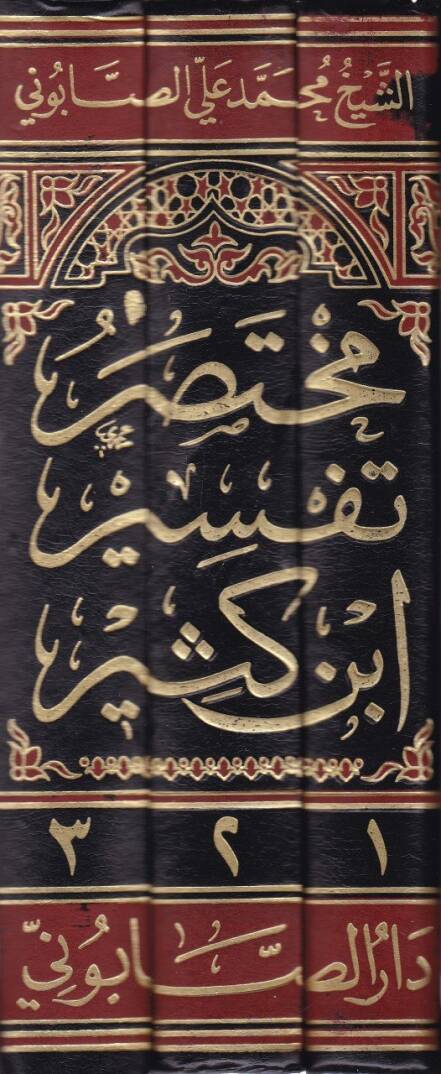 الشَّيْخُ مُحَمَّد عَلِي الصَّابُونِي
مُخْتَصَرُ
تَفْسِيْرِ
ابْنِ كَثِيْرٍ
١ ٢ ٣
دَارُ الصَّابُونِيّ